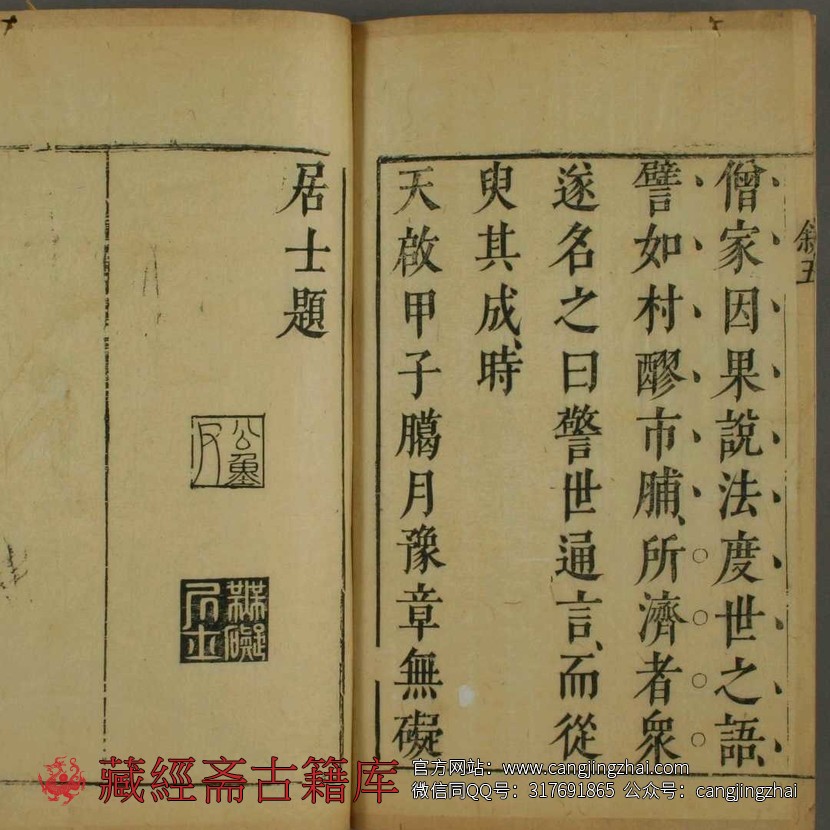 敘五
僧家因果說法度世之語、
譬如村醪市脯、所濟者眾
遂名之曰警世通言、而從
臾其成、時
天啟甲子臈月豫章無礙
居士題
無礙居士
藏經斋古籍库
官方网站：www.cangjingzhai.com
微信同QQ号：317691865 公众号：cangjingzhai